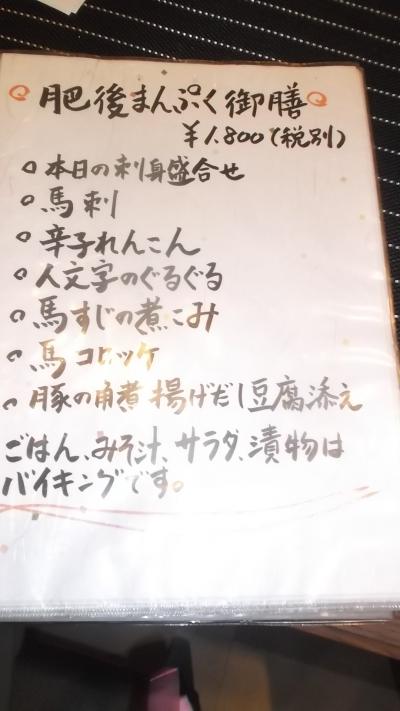 肥後まんぷく御膳
¥1,800(税別)
○本日の刺身盛合せ
○馬刺
○辛子れんこん
○人文字のぐるぐる
○馬すじの煮こみ
○馬コロッケ
○豚の角煮 揚げだし豆腐添え
ごはん、みそ汁、サラダ、漬物は
バイキングです。